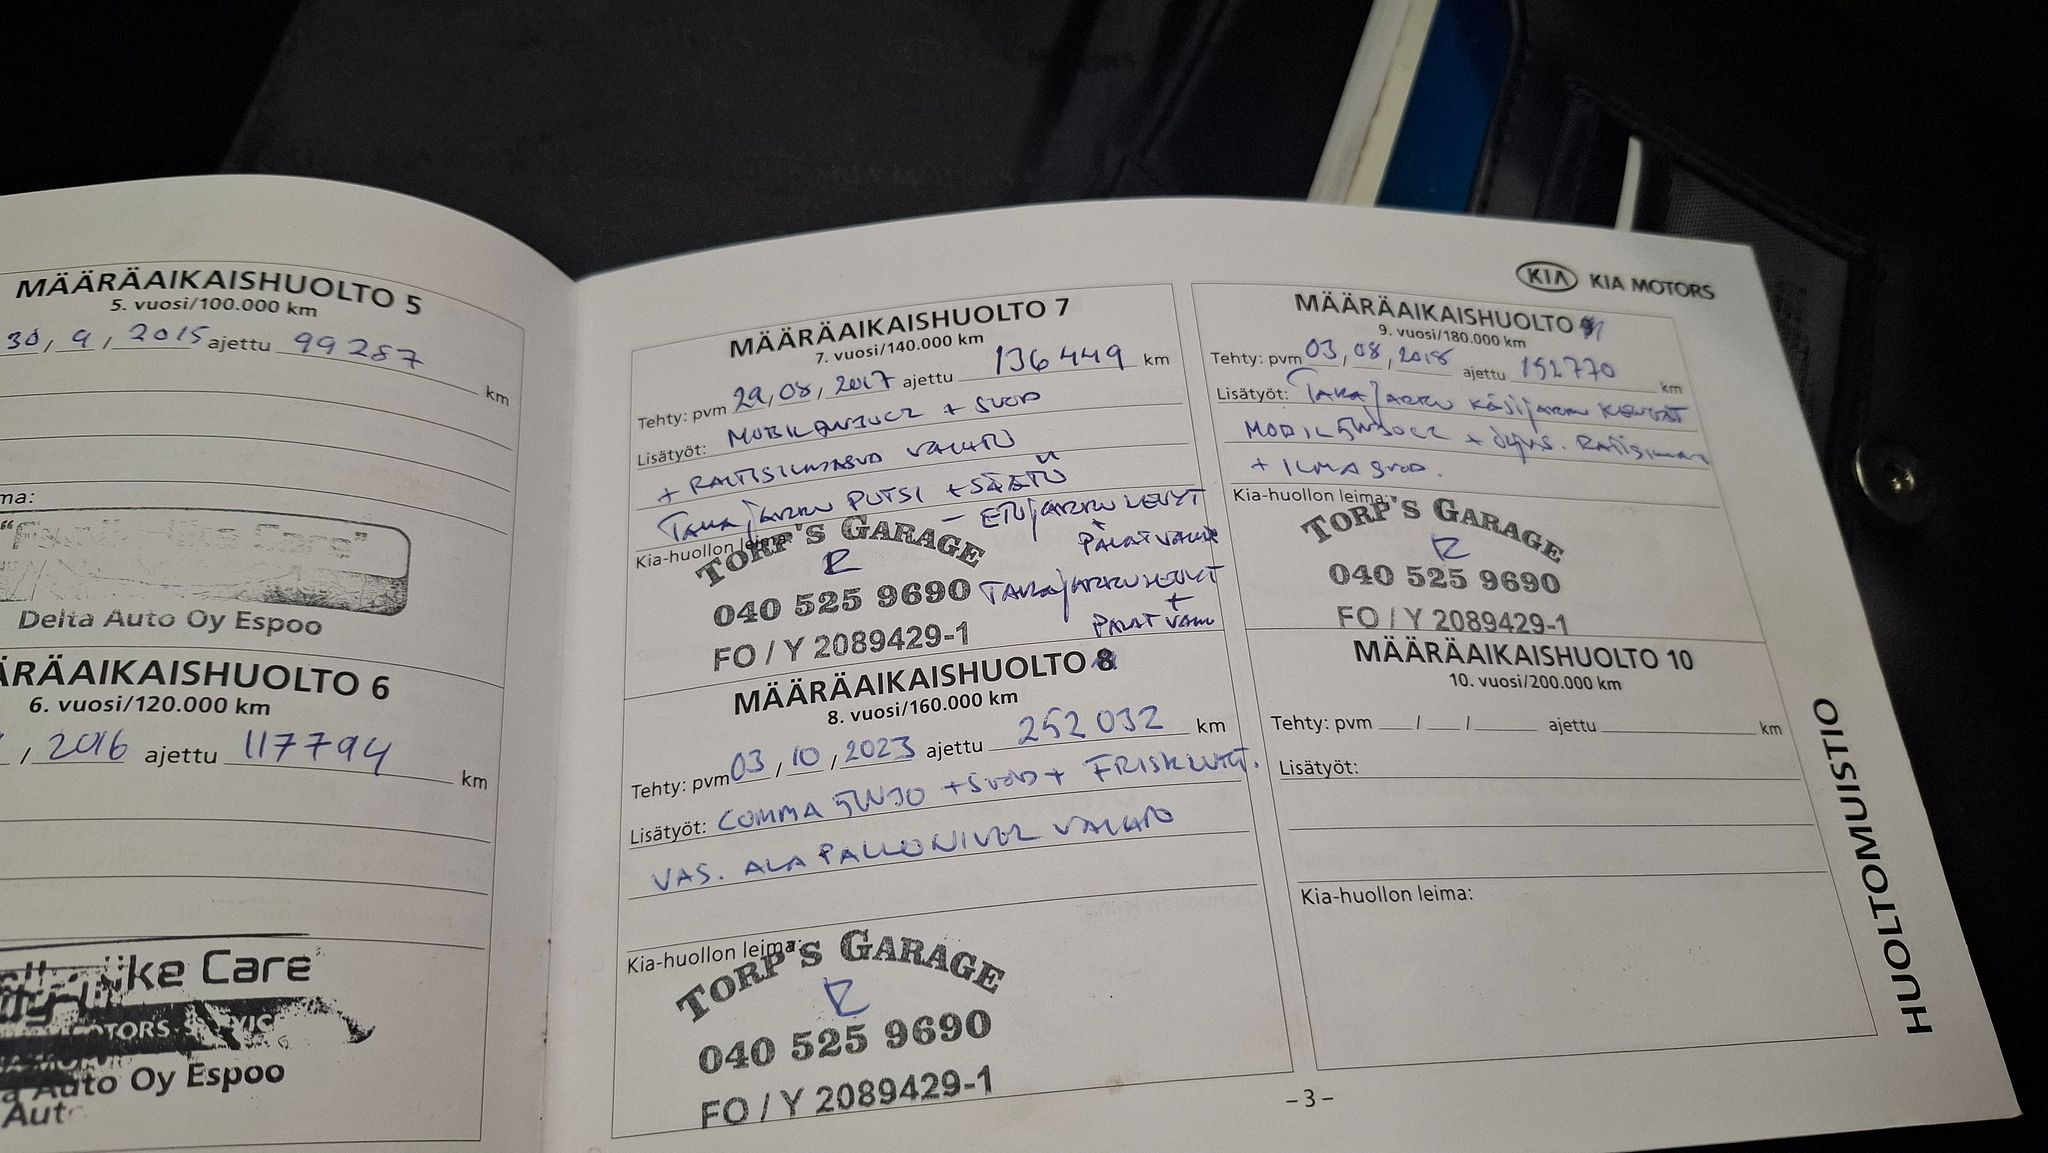 MÄÄRÄAIKAISHUOLTO 5
5. vuosi/100.000 km
30, 9, 2015 ajettu 99287 km
ma:
Delta Auto Oy Espoo
ÄRÄAIKAISHUOLTO 6
6. vuosi/120.000 km
/ 2016 ajettu 117794 km
ike Care
OTORS
Auto Oy Espoo
Aut
MÄÄRÄAIKAISHUOLTO 7
7. vuosi/140.000 km
Tehty: pvm 29, 08, 2017 ajettu 136449 km
Lisätyöt: + SUOD
+ VAIHTO
TAKAJARRU PUTSI + SÄÄTÖ
- ETUJARRULEVYT
+
PALAT
Kia-huollon leima:
TORP'S GARAGE
040 525 9690
TAKAJARRULEVYT
+
PALAT
FO / Y 2089429-1
MÄÄRÄAIKAISHUOLTO 8
8. vuosi/160.000 km
Tehty: pvm 03 / 10 / 2023 ajettu 252 032 km
Lisätyöt: COMMA 5W30 + SUOD +
VAS. ALAPALLONIVEL VAIHTO
Kia-huollon leima:
TORP'S GARAGE
040 525 9690
FO / Y 2089429-1
KIA KIA MOTORS
MÄÄRÄAIKAISHUOLTO 9
9. vuosi/180.000 km
Tehty: pvm 03, 08, 2018 ajettu 152770 km
Lisätyöt: TAKAJARRU KÄSIJARRU
+ ILMASUOD.
Kia-huollon leima:
TORP'S GARAGE
040 525 9690
FO / Y 2089429-1
MÄÄRÄAIKAISHUOLTO 10
10. vuosi/200.000 km
Tehty: pvm / / ajettu km
Lisätyöt:
Kia-huollon leima:
HUOLTOMUISTIO
– 3 –